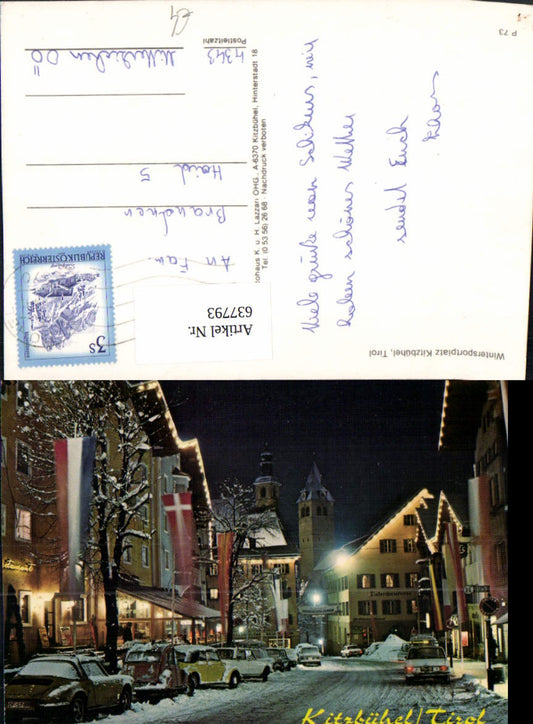 P 73
Viele Grüße vom Schikurs, wir
haben schönes Wetter
sendet Euch
Wintersportplatz Kitzbühel, Tirol
Artikel Nr.
637793
REPUBLIK ÖSTERREICH
3S
An Fam.
Brandner
Haid 5
4343
Mitterkirchen OÖ
Postleitzahl
K. u. H. Lazzari OHG., A-6370 Kitzbühel, Hinterstadt 18
Tel. (0 53 56) 26 68 · Nachdruck verboten
Kitzbühel/Tirol